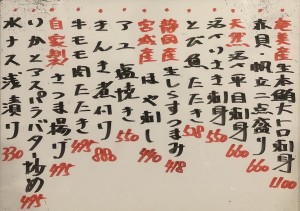 奄美産 生本鮪大トロ刺身 1100
赤貝・帆立二点盛り 660
天然 活〆平目刺身 660
刺身 550
とび魚たたき 528
静岡産 生しらすつまみ 418
宮城産 ほや刺し 440
アユ塩焼き 550
きんき煮付け 880
牛モモ肉たたき 495
自家製 さつま揚げ 495
いかとアスパラバター炒め 495
水ナス浅漬り 330